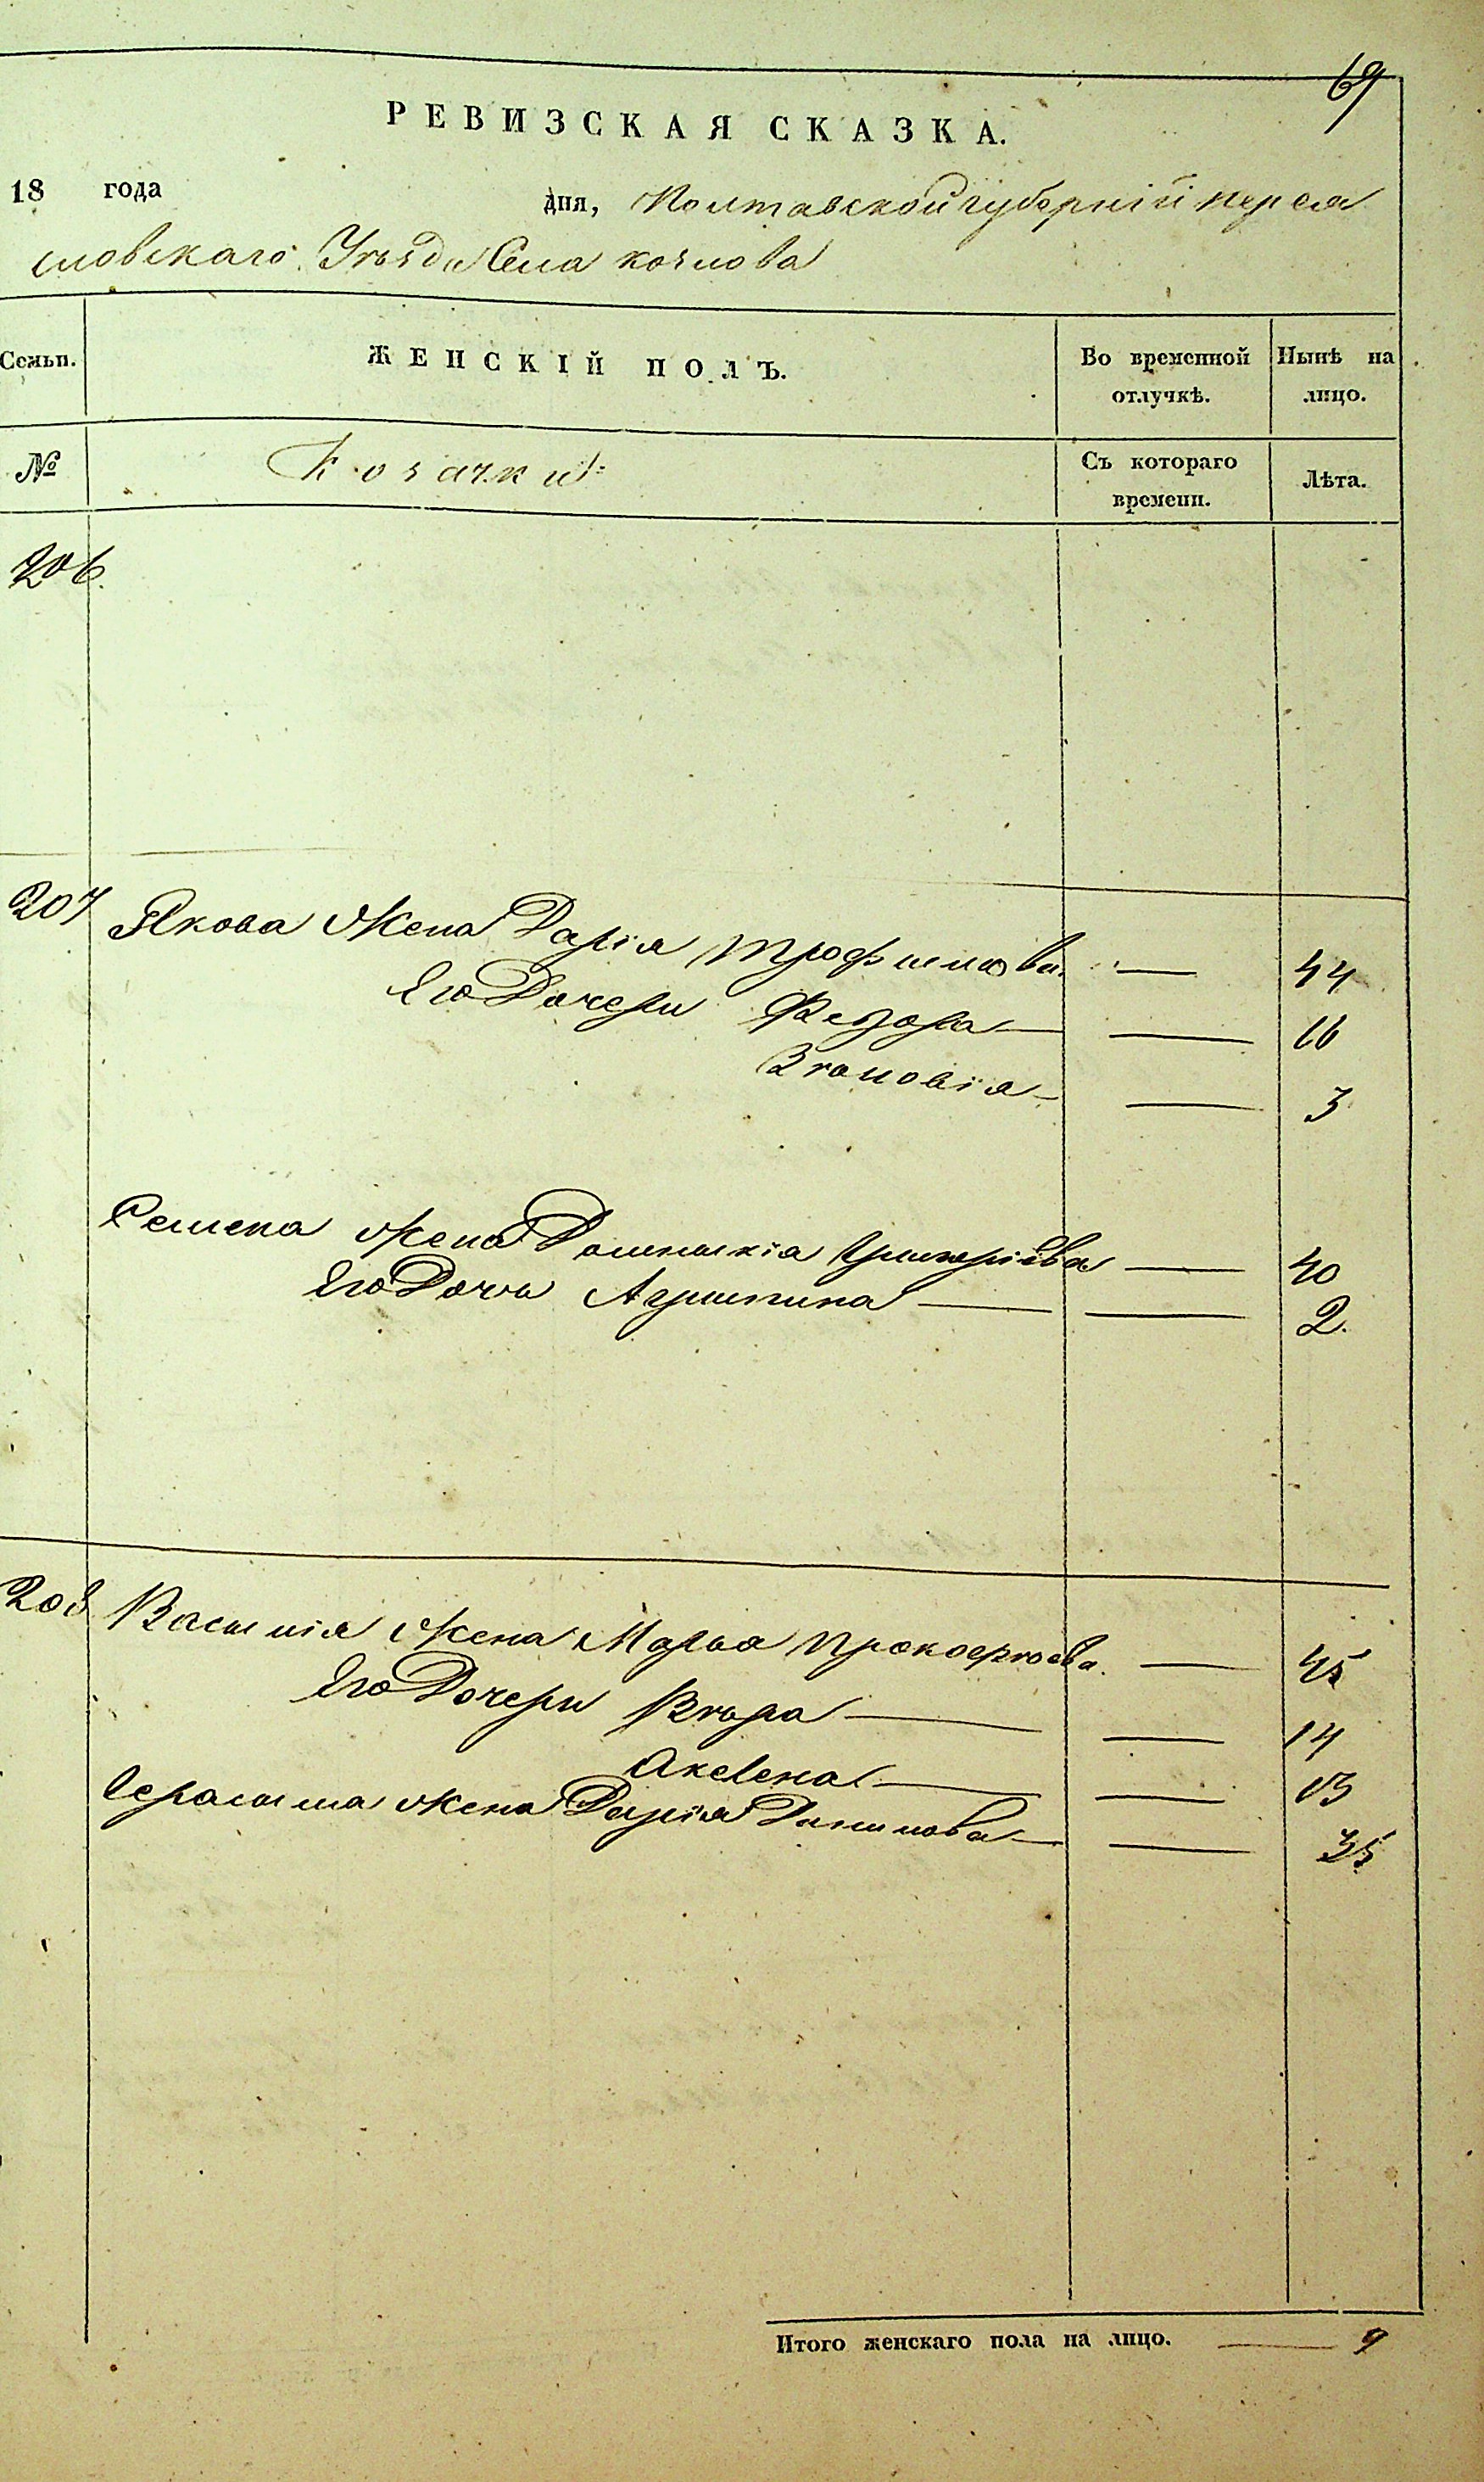 69
РЕВИЗСКАЯ СКАЗКА.
18 года дня, Полтавской губерніи перея
словскаго Уѣзда Села козлова
Семьи. ЖЕНСКІЙ ПОЛЪ. Во временной отлучкѣ. Нынѣ на лицо.
№ Козачки Съ котораго времени. Лѣта.
206.
207 Якова Жена Дарія трофимова — 44
Его Дочери Федора — — 16
Зѣновія — — 3
Семена Жена Домникія Григоріева — 40
Его Дочь Агрипина — — 2.
208 Василія Жена Марья прокофіева. — 45
Его Дочери Вѣра — — 14
Аксена — — 13
Герасима жена Дарія Данилова — — 35
Итого женскаго пола на лицо. — 9